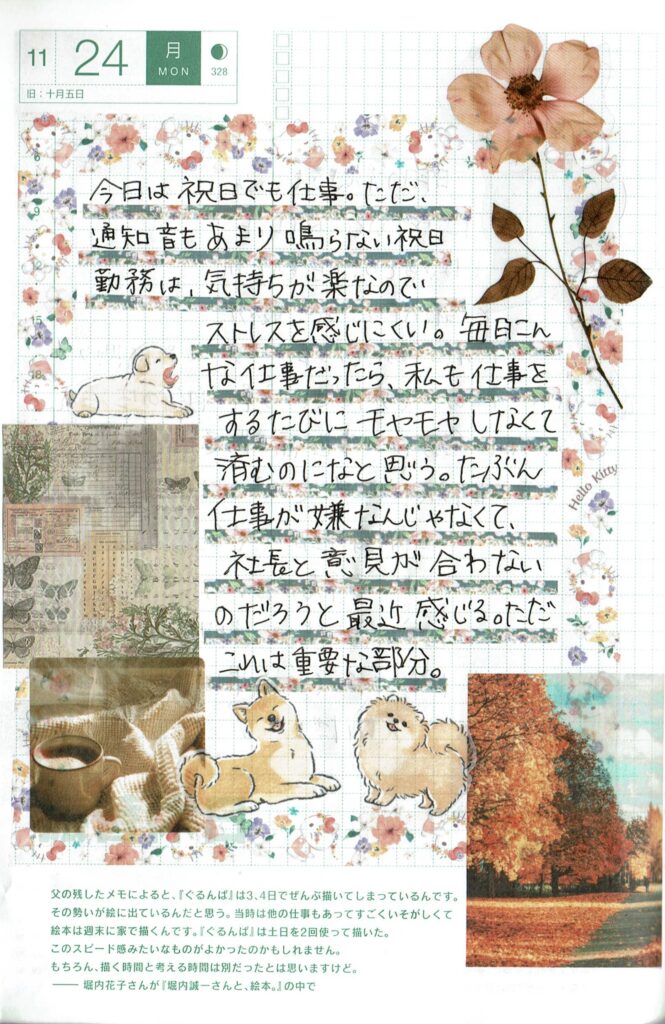 11
24
月
MON
328
旧：十月五日
6
9
15
18
今日は祝日でも仕事。ただ、
通知音もあまり鳴らない祝日
勤務は、気持ちが楽なので
ストレスを感じにくい。毎日こん
な仕事だったら、私も仕事を
するたびにモヤモヤしなくて
済むのになと思う。たぶん
仕事が嫌なんじゃなくて、
社長と意見が合わない
のだろうと最近感じる。ただ
これは重要な部分。
Hello Kitty
父の残したメモによると、『ぐるんぱ』は3、4日でぜんぶ描いてしまっているんです。
その勢いが絵に出ているんだと思う。当時は他の仕事もあってすごくいそがしくて
絵本は週末に家で描くんです。『ぐるんぱ』は土日を2回使って描いた。
このスピード感みたいなものがよかったのかもしれません。
もちろん、描く時間と考える時間は別だったとは思いますけど。
—— 堀内花子さんが『堀内誠一さんと、絵本。』の中で